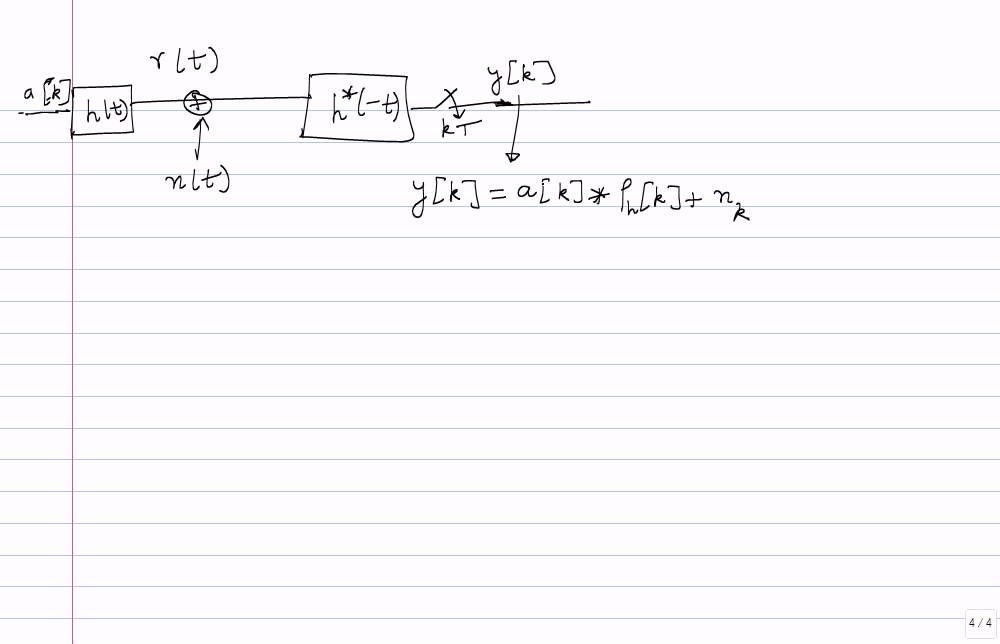 r(t)
a[k] h(t) + h*(-t) kT y[k]
n(t)
y[k] = a[k] * ρh[k] + nk
4 / 4